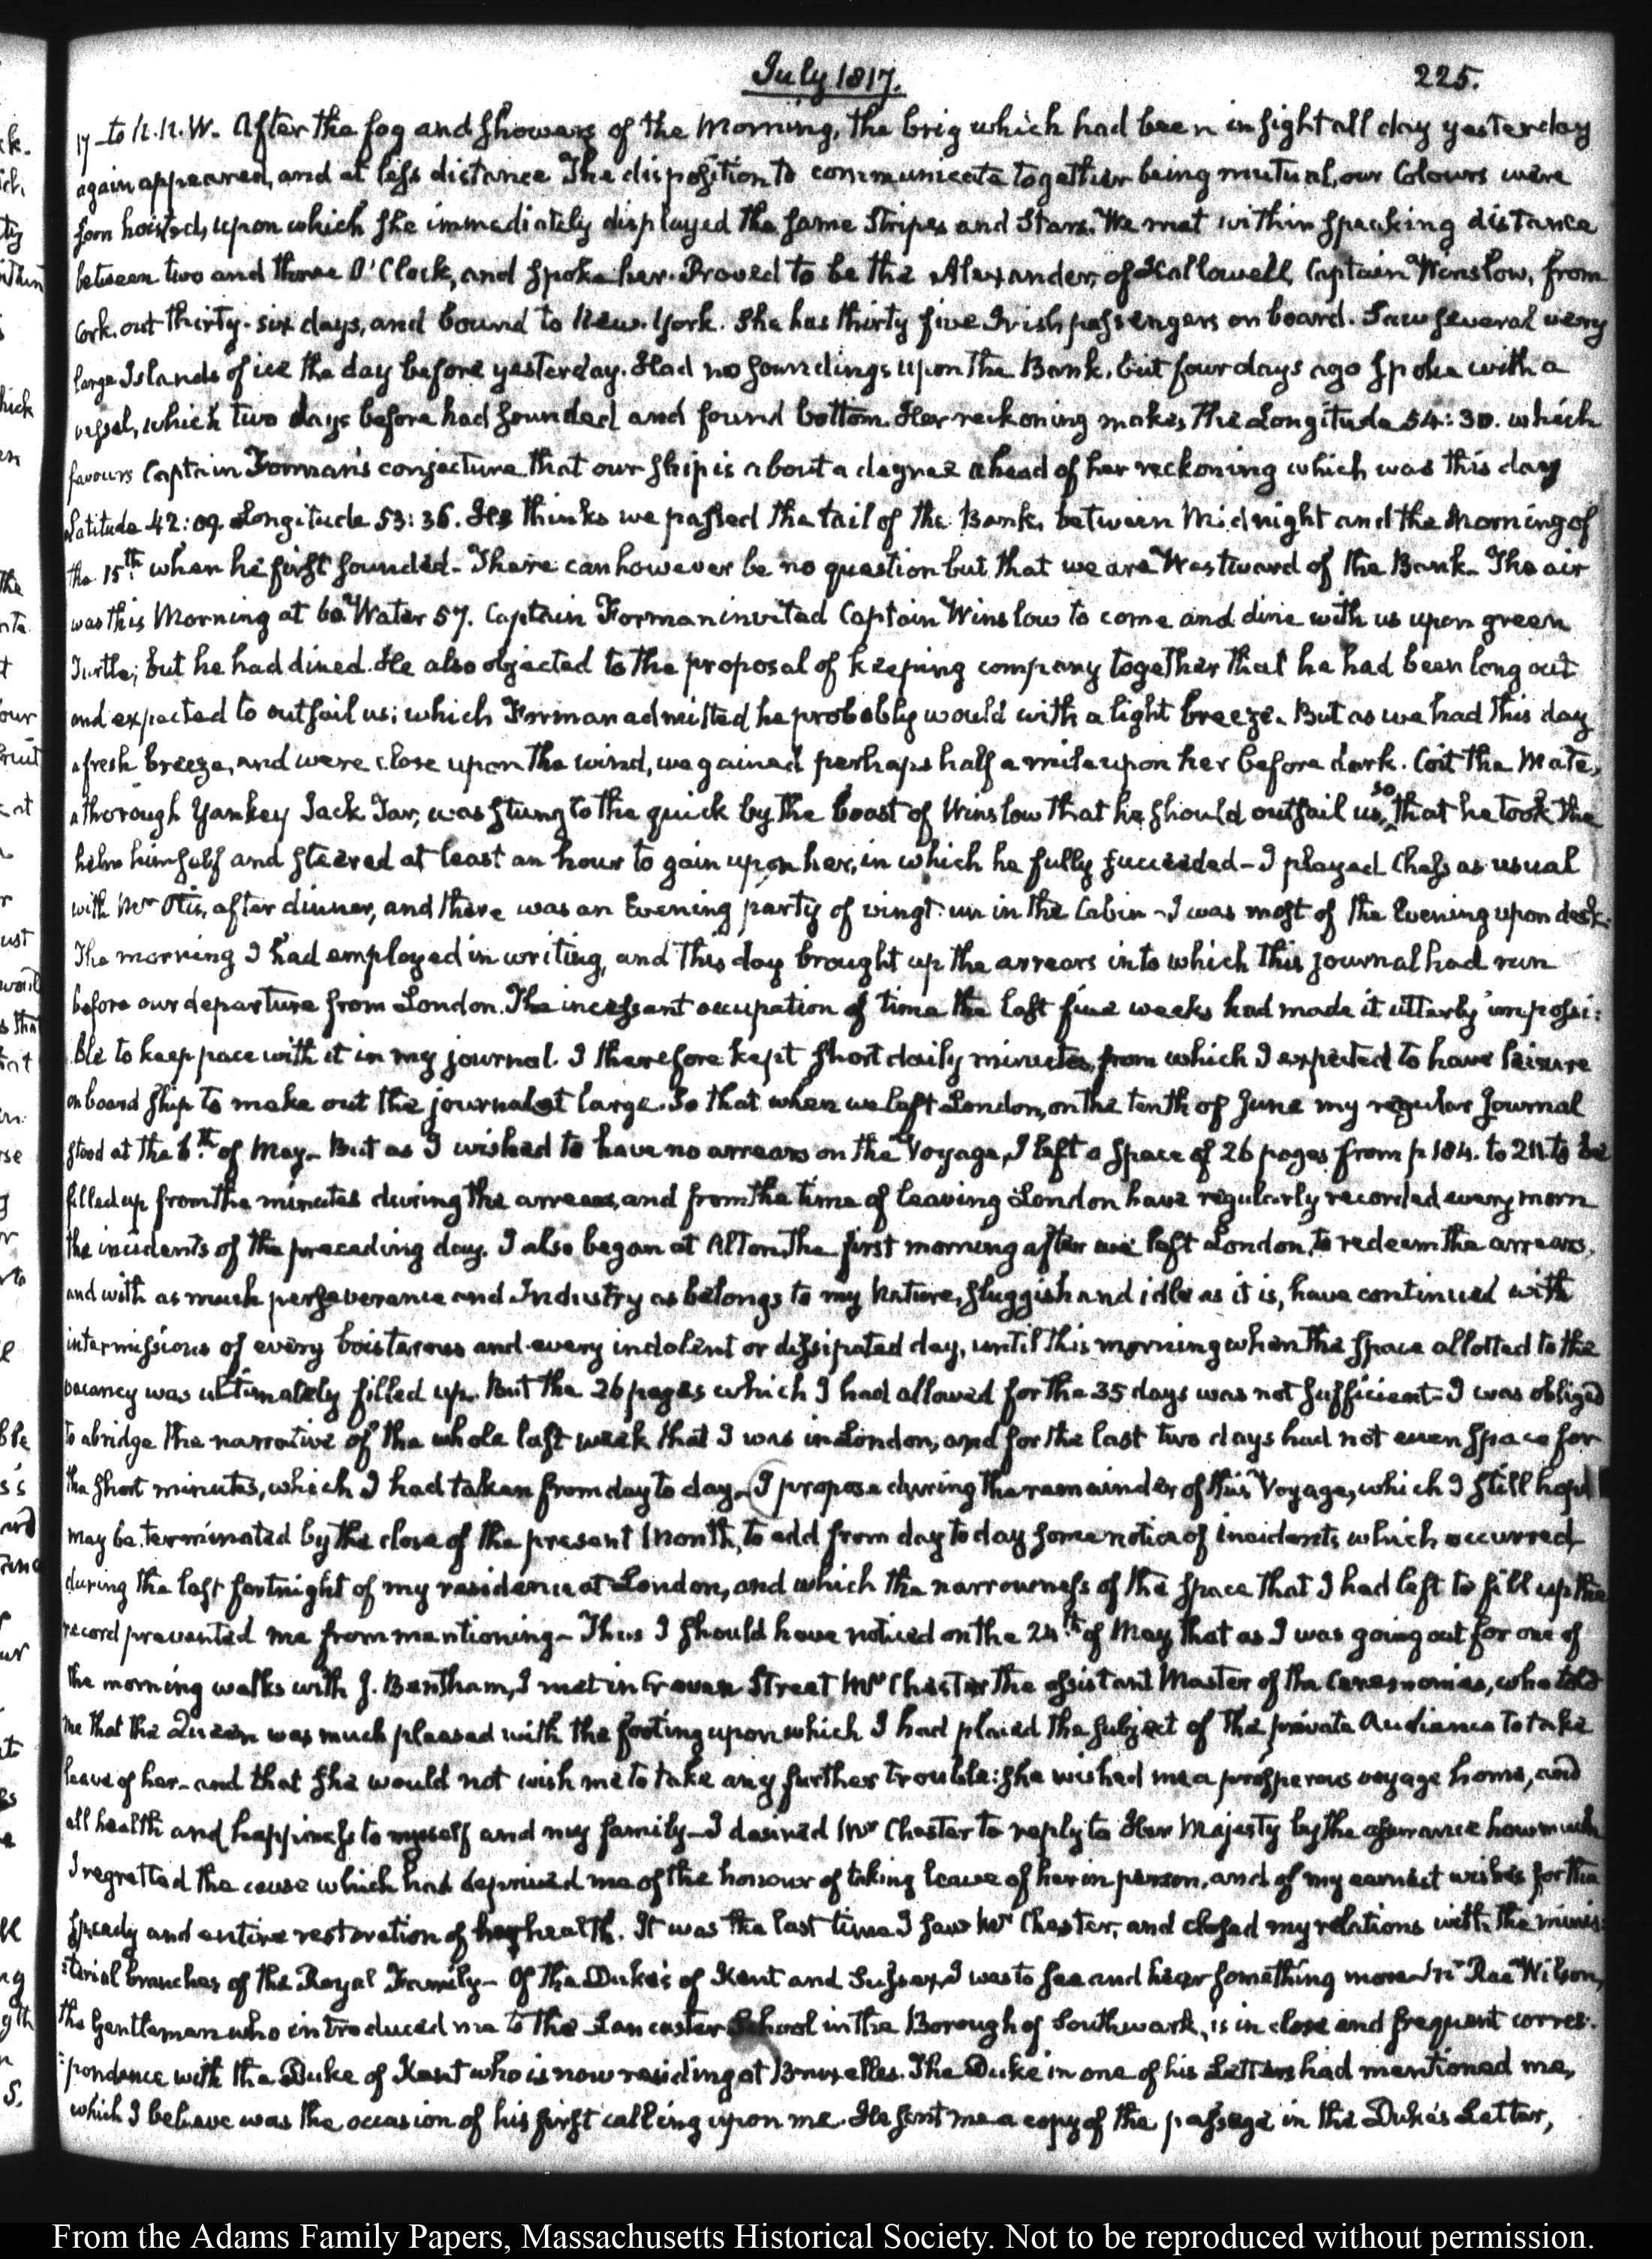 July 1817. 225.
17— to N.N.W. After the fog and showers of the Morning, the brig which had been in sight all day yesterday
again appeared, and at less distance The disposition to communicate together being mutual, our Colours were
soon hoisted, upon which she immediately displayed the same Stripes and Stars. We met within speaking distance
between two and three O'Clock, and spoke her. Proved to be the Alexander, of Hallowell, Captain Winslow, from
Cork. out thirty-six days, and bound to New-York. She has thirty five Irish passengers on board. Saw several very
large Islands of ice the day before yesterday. Had no soundings upon the Bank, but four days ago spoke with a
vessel, which two days before had sounded and found bottom. Her reckoning makes the Longitude 54:30. which
favours Captain Forman's conjecture that our ship is about a degree ahead of her reckoning which was this day
Latitude 42:09. Longitude 53:36. He thinks we passed the tail of the Bank, between Midnight and the Morning of
the 15th. when he first sounded— There can however be no question but that we are Westward of the Bank— The air
was this Morning at 60 Water 57. Captain Forman invited Captain Winslow to come and dine with us upon green
Turtle; but he had dined. He also objected to the proposal of keeping company together that he had been long out
and expected to outsail us; which Forman admitted he probably would with a light breeze. But as we had this day
a fresh breeze, and were close upon the wind, we gained perhaps half a mile upon her before dark. Coit the Mate,
a thorough Yankey Jack Tar, was stung to the quick by the boast of Winslow that he should outsail us, so that he took the
helm himself and steered at least an hour to gain upon her, in which he fully succeeded— I played Chess as usual
with Mr Otis, after dinner, and there was an Evening party of vingt-un in the Cabin— I was most of the Evening upon deck.
The morning I had employed in writing, and this day brought up the arrears into which this journal had run
before our departure from London. The incessant occupation of time the last five weeks had made it utterly impossi:
ble to keep pace with it in my journal. I therefore kept short daily minutes, from which I expected to have leisure
on board ship to make out the journal at large. So that when we left London, on the tenth of June my regular journal
stood at the 6th. of May— But as I wished to have no arrears on the Voyage, I left a space of 26 pages from p 184. to 211. to be
filled up from the minutes during the arrears, and from the time of leaving London have regularly recorded every morn
the incidents of the preceding day. I also began at Alton the first morning after we left London, to redeem the arrears,
and with as much perseverance and Industry as belongs to my Nature, sluggish and idle as it is, have continued with
intermissions of every boisterous and every indolent or dissipated day, until this morning when the space allotted to the
vacancy was ultimately filled up. But the 26 pages which I had allowed for the 35 days was not sufficient— I was obliged
to abridge the narrative of the whole last week that I was in London, and for the last two days had not even space for
the short minutes, which I had taken from day to day— I propose during the remainder of this Voyage, which I still hope
may be terminated by the close of the present Month, to add from day to day some notice of incidents which occurred
during the last fortnight of my residence at London, and which the narrowness of the space that I had left to fill up the
record prevented me from mentioning— Thus I should have noticed on the 24th. of May that as I was going out for one of
the morning walks with J. Bentham, I met in Craven Street Mr Chester the assistant Master of the Ceremonies, who told
me that the Queen was much pleased with the footing upon which I had placed the subject of the private Audience to take
leave of her— and that she would not wish me to take any further trouble: she wished me a prosperous voyage home, and
all health and happiness to myself and my family— I desired Mr Chester to reply to Her Majesty by the assurance how much
I regretted the cause which had deprived me of the honour of taking leave of her in person, and of my earnest wishes for the
speedy and entire restoration of her health. It was the last time I saw Mr Chester, and closed my relations with the minis:
:terial branches of the Royal Family— Of the Dukes of Kent and Sussex, I was to see and hear something more— Mr Rae Wilson,
the Gentleman who introduced me to the Lancaster School in the Borough of Southwark, is in close and frequent corres:
:pondence with the Duke of Kent who is now residing at Bruxelles. The Duke in one of his Letters had mentioned me,
which I believe was the occasion of his first calling upon me. He sent me a copy of the passage in the Duke's Letter,
From the Adams Family Papers, Massachusetts Historical Society. Not to be reproduced without permission.